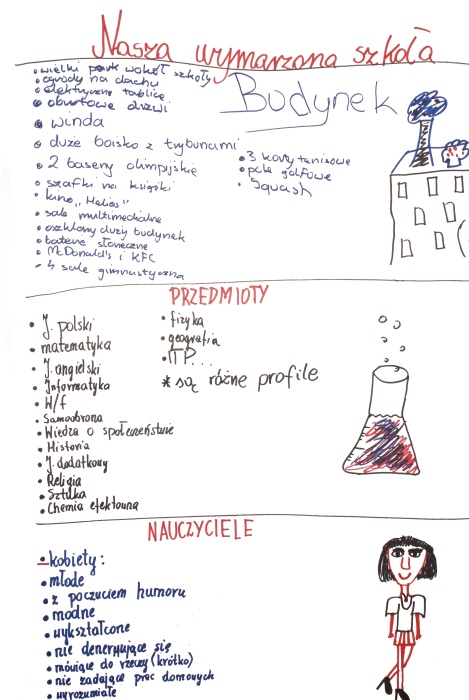 Nasza wymarzona szkoła
Budynek
• wielki park wokół szkoły
• ogrody na dachu
• elektryczne tablice
• obrotowe drzwi
• winda
• duże boisko z trybunami
• 2 baseny olimpijskie
• szafki na książki
• kino „Helios"
• sale multimedialne
• oszklony duży budynek
• baterie słoneczne
• McDonald's i KFC
- 4 sale gimnastyczna
• 3 korty tenisowe
• pole golfowe
• Squash
PRZEDMIOTY
• J. polski
• matematyka
• J. angielski
• Informatyka
• W/f
• Samoobrona
• Wiedza o społeczeństwie
• Historia
• J. dodatkowy
• Religia
• Sztuka
• Chemia efektowna
• fizyka
• geografia
• ITP...
* są różne profile
NAUCZYCIELE
• kobiety:
• młode
• z poczuciem humoru
• modne
• wykształcone
• nie denerwujące się
• mówiące do rzeczy (krótko)
• nie zadające prac domowych
• wyrozumiałe